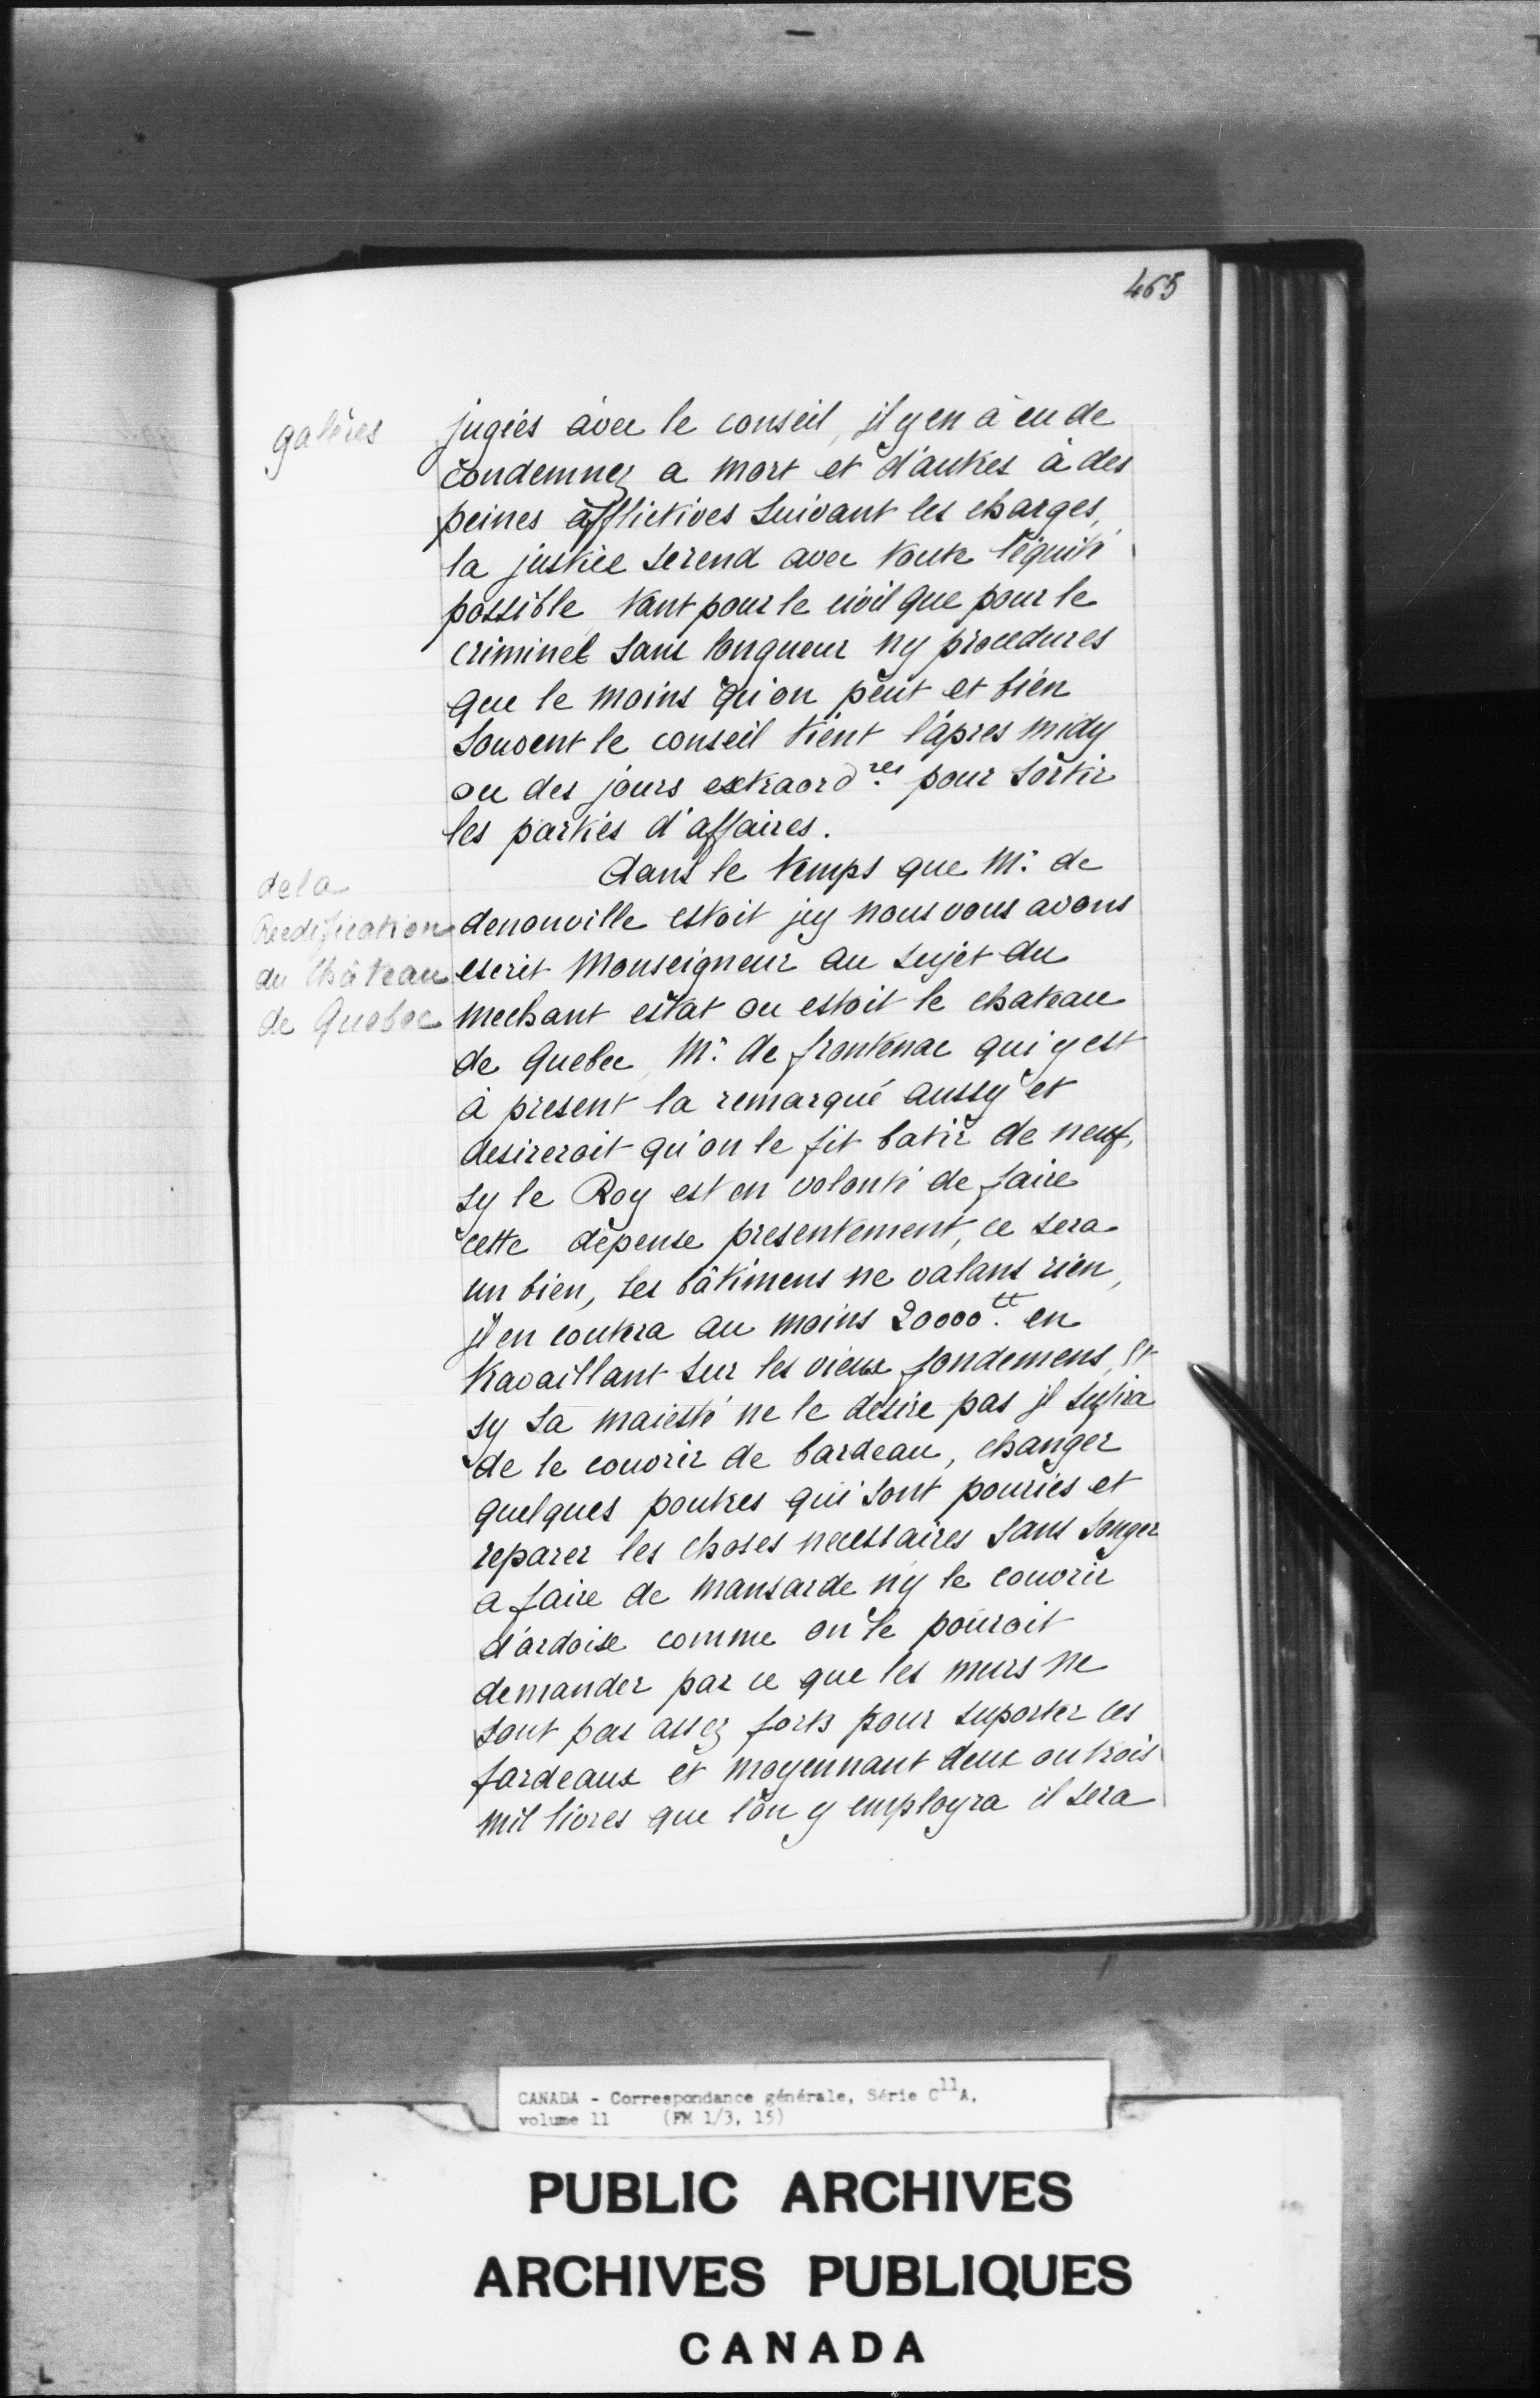 465
galères
jugiés avec le conseil, jl y en à eu de
condemnez a mort et d'autres à des
peines afflictives suivant les charges,
la justice se rend avec toute l'équité
possible tant pour le civil que pour le
criminel sans longueur ny procedures
que le moins qu'on peut et bien
souvent le conseil tient l'apres midy
ou des jours extraord.res pour sortir
les parties d'affaires.
de la
Reedification
du Château
de Quebec
dans le temps que Mr. de
denonville estoit jcy nous vous avons
escrit Monseigneur au sujet du
mechant estat ou estoit le chateau
de Quebec, Mr. de frontenac qui y est
à present la remarqué aussy et
desireroit qu'on le fit batir de neuf,
sy le Roy est en volonté de faire
cette dépense presentement, ce sera
un bien, les bâtimens ne valans rien,
jl en coutera au moins 20000.tt en
travaillant sur les vieux fondemens, et
sy sa maiesté ne le desire pas jl sufira
de le couvrir de bardeau, changer
quelques poutres qui sont pouries et
reparer les choses necessaires sans songer
a faire de mansarde ny le couvrir
d'ardoise comme on le pouroit
demander par ce que les murs ne
sont pas assez forts pour suporter ces
fardeaux et moyennant deux ou trois
mil livres que l'on y employra il sera
CANADA - Correspondance générale, Série C11A,
volume 11 (FM 1/3, 15)
PUBLIC ARCHIVES
ARCHIVES PUBLIQUES
CANADA
L